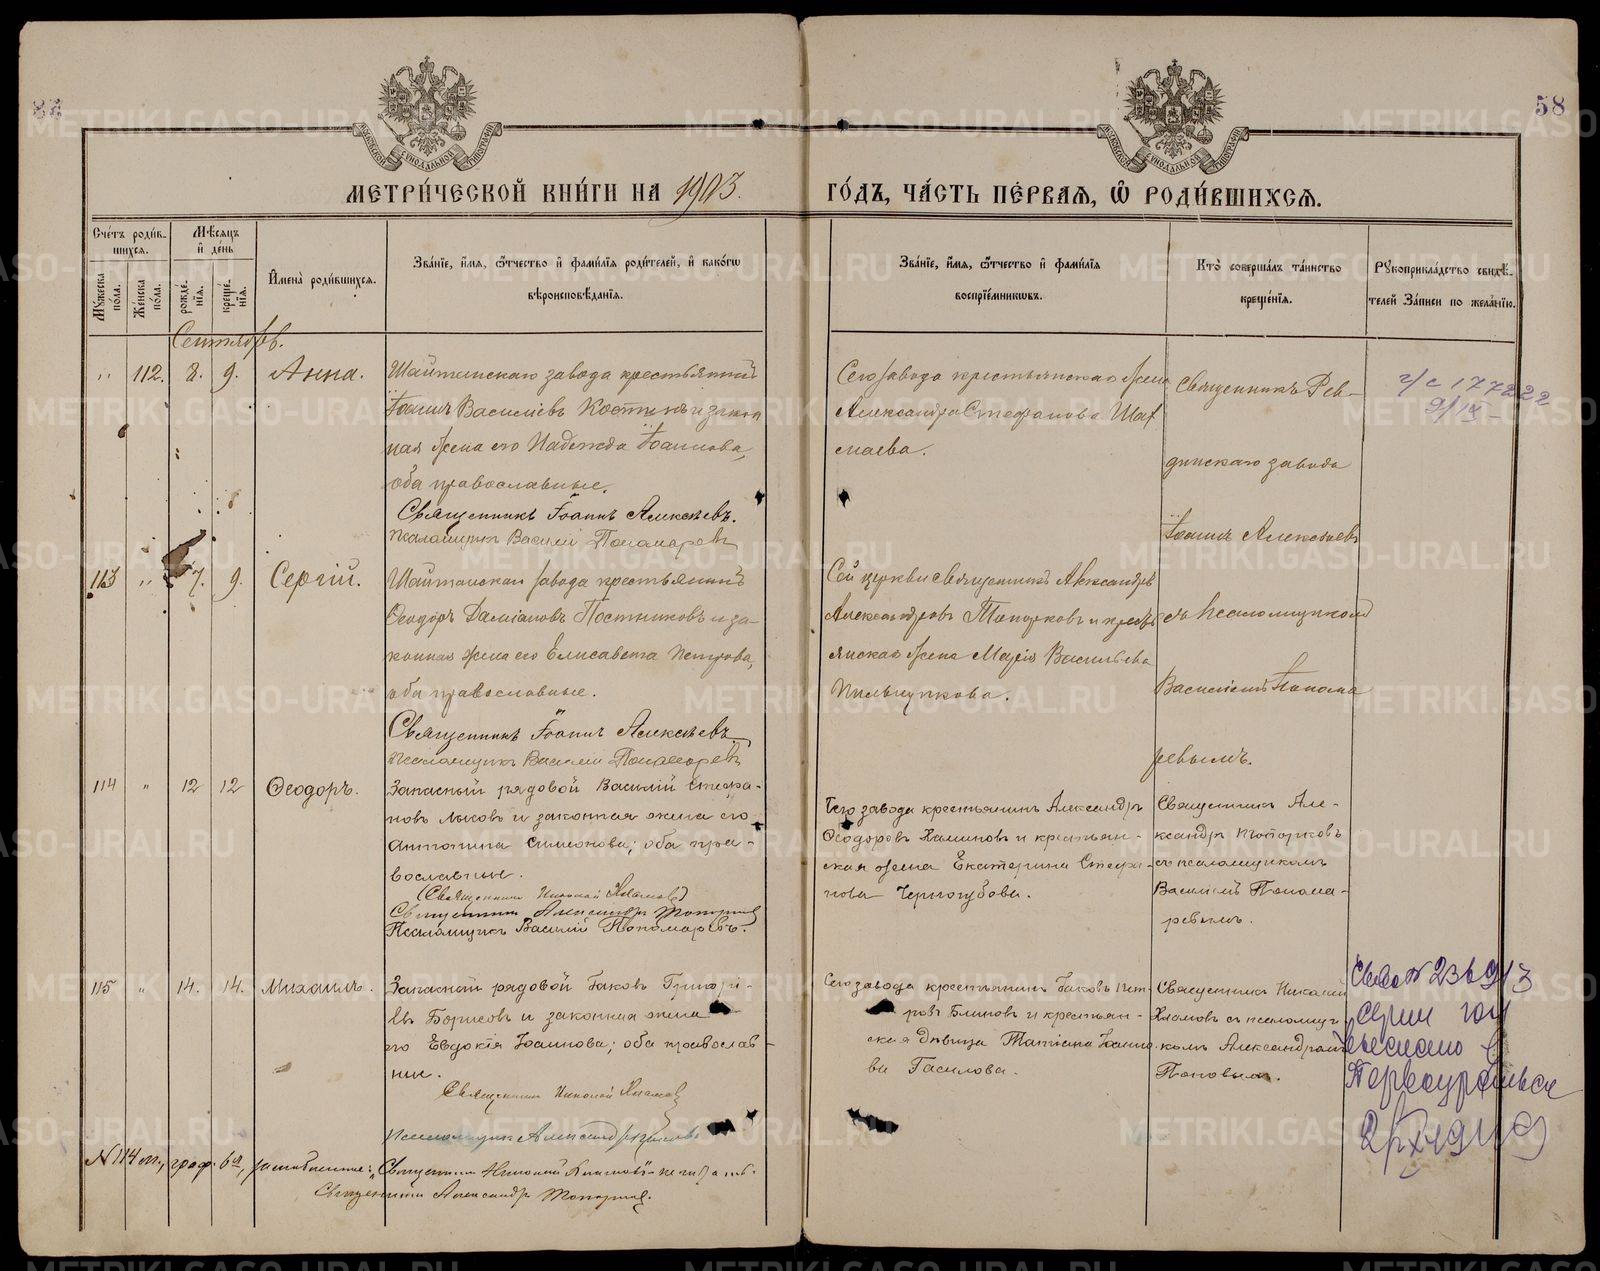 58
МЕТРИ́ЧЕСКОЙ КНИ́ГИ НА 1903. ГО́ДЪ, ЧА́СТЬ ПЕ́РВАѦ, Ѡ РОДИ́ВШИХСѦ.
Сче́тъ роди́в-
шихсѧ.
Мужеска по́ла.
Же́нска по́ла.
Мѣ́сѧцъ
и҆ де́нь
рожде́нїѧ.
креще́нїѧ.
И҆мена̀ роди́вшихсѧ.
Зва́нїе, и҆́мѧ, ѻ҆́тчество и҆ фами́лїѧ роди́телей, и҆ како́гѡ
вѣроисповѣ́данїѧ.
Зва́нїе, и҆́мѧ, ѻ҆́тчество и҆ фами́лїѧ
воспрїе́мникѡвъ.
Кто̀ соверша́лъ та́инство
креще́нїѧ.
Рукоприкла́дство свидѣ́-
телей За́писи по жела́нїю.
Сентябрь.
" 112. 8. 9. Анна.
Шайтанскаго завода крестьянинъ
Іоаннъ Васильевъ Костинъ и закон
ная жена его Надежда Іоаннова,
оба православные.
Священникъ Іоаннъ Алексѣевъ.
Псаломщикъ Василій Пономаревъ
Сего завода крестьянская жена
Александра Стефанова Шах
маева.
Священникъ Рев-
динскаго завода
Іоаннъ Алексѣевъ
съ псаломщикомъ
Василіемъ Понома
ревымъ.
113 " 7. 9. Сергій.
Шайтанскаго завода крестьянинъ
Ѳеодоръ Даміановъ Постниковъ и за-
конная жена его Елисавета Петрова,
оба православные.
Священникъ Іоаннъ Алексѣевъ
Псаломщикъ Василій Пономаревъ
Сей церкви священникъ Александръ
Александровъ Топорковъ и кресть
янская жена Марія Васильева
Пильщикова.
114 " 12 12 Ѳеодоръ.
Запасный рядовой Василій Стефа-
новъ Лысовъ и законная жена его
Антонина Симонова; оба пра-
вославные.
(Священникъ Николай Хламовъ)
Священникъ Александръ Топорковъ
Псаломщикъ Василій Пономаревъ.
Сего завода крестьянинъ Александръ
Ѳеодоровъ Халиновъ и крестьян-
ская жена Екатерина Стефа-
нова Черногубова.
Священникъ Але-
ксандръ Топорковъ
съ псаломщикомъ
Василіемъ Понома-
ревымъ.
115 " 14. 14. Михаилъ.
Запасный рядовой Іаковъ Григорі-
евъ Борисовъ и законная жена
его Евдокія Іоаннова; оба православ-
ные.
Священникъ Николай Хламовъ
Псаломщикъ Александръ Поповъ
Сего завода крестьянинъ Іаковъ Пет-
ровъ Блиновъ и крестьян-
ская дѣвица Татіана Іоанно
ва Гасилова.
Священникъ Николай
Хламовъ съ псаломщи
комъ Александромъ
Поповымъ.
№ 114 м., граф. 6я, зачеркнутое: "Священникъ Николай Хламовъ" не читать.
Священникъ Александръ Топорковъ.